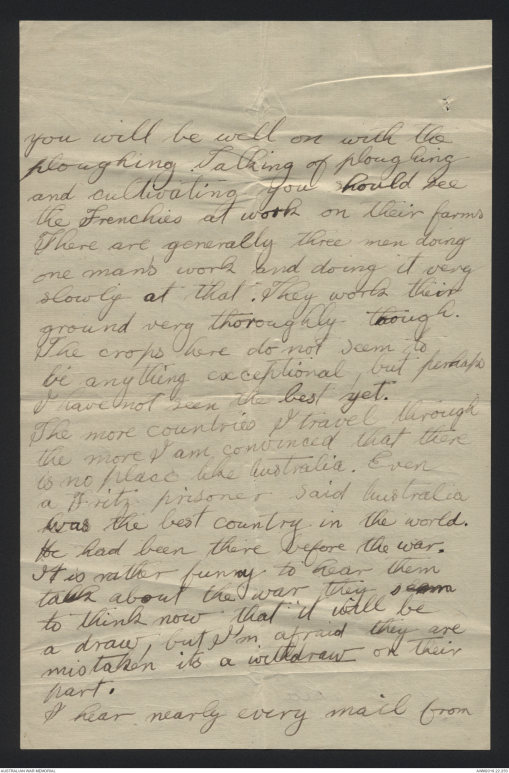 you will be well on with the
ploughing. Talking of ploughing
and cultivating you should see
the Frenchies at work on their farms
There are generally three men doing
one mans work and doing it very
slowly at that. They work their
ground very thoroughly though.
The crops here do not seem to
be anything exceptional, but perhaps
I have not seen the best yet.
The more countries I travel through
the more I am convinced that there
is no place like Australia. Even
a Fritz prisoner said Australia
was the best country in the world.
He had been there before the war.
It is rather funny to hear them
talk about the war they seem
to think now that it will be
a draw, but I'm afraid they are
mistaken its a withdraw on their
part.
I hear nearly every mail from
AUSTRALIAN WAR MEMORIAL